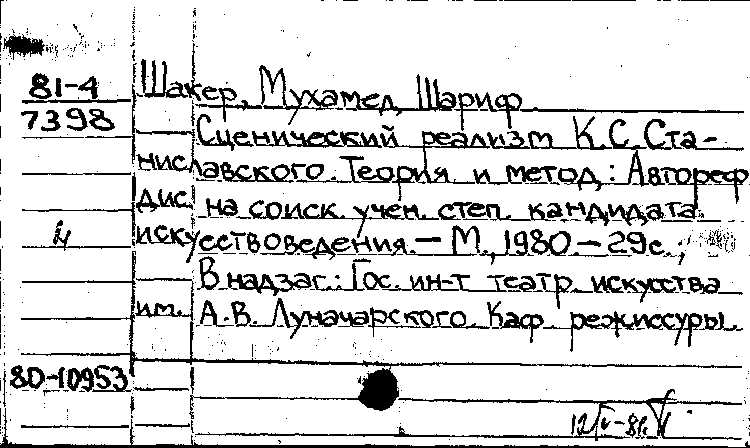 81-4
7398
Шакер, Мухамед Шариф.
Сценический реализм К.С.Ста-
ниславского. Теория и метод : Автореф
дис. на соиск. учен. степ. кандидата
искусствоведения. — М., 1980. — 29 с.;
В надзаг.: Гос. ин-т театр. искусства
им. А.В. Луначарского. Каф. режиссуры.
80-10953